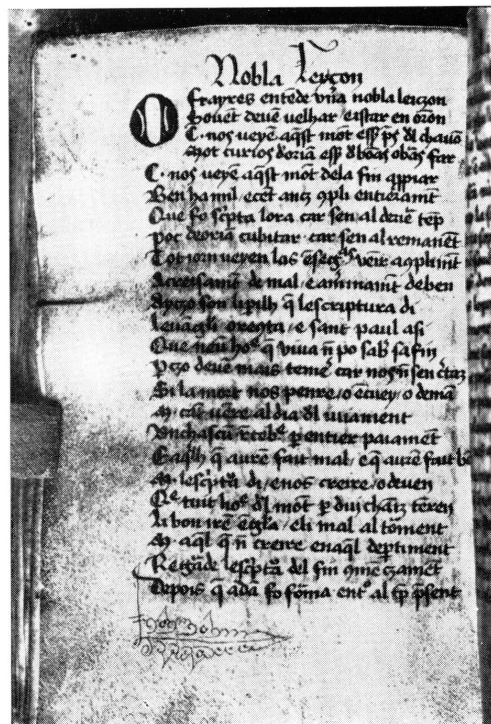 Nobla Leyçon
O frayres entēde vn̄a nobla leiczon
Sovēt devē velhar / e istar en or̄on
C. nos veyē aq̄st mōt ess̄ p̄s dl chavō
Mot curios doriā ess̄ d bōas obr̄as far
C. nos veyē aq̄st mōt de la fin appiar
Ben ha mil / e cēt anz 9pli entieramt̄
Que fo scpta lora car sen al derie tēp
poc deoriā cubitar / car sen al remanēt
Tot iorn veyen las ēsegs̄ veir a 9plimt̄
Acreisamt̄ de mal / e amermamt̄ de ben
Ayczo son li perilh q̄ lescriptura di
levāgli o recōta / e sant paul asi
Que neū hoē q̄ viva n̄ po sab̄ sa fin
Pczo devē mais temē / car nos n̄ sen c̄taz
Si la mort nos penre / o ēcuey / o demā
M. cāt vēre al dia dl iuiament
Vnchascū recebē p̄ entier paiamēt
E aq̄lh q̄ aurē fait mal / e q̄ aurē fait bē
M. lescp̄tā di / e nos creire / o deven
Qē tuit hoē dl mōt p̄ dui chāiz tēren
li bon irē ē gla / e li mal al tōment
M. aq̄l q̄ n̄ creire en aq̄l deptiment
Regarde lescp̄tā del fin 9mēczamēt
Depois q̄ ada fo fōma entō al tp̄ p̄sent